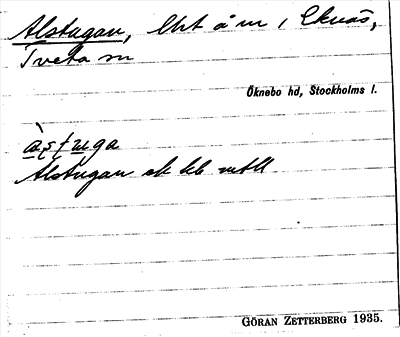 Alstugan, lht å m i Eknäs,
Tveta sn
Öknebo hd, Stockholms l.
àstuga
Alstugan ek kb
GÖRAN ZETTERBERG 1935.